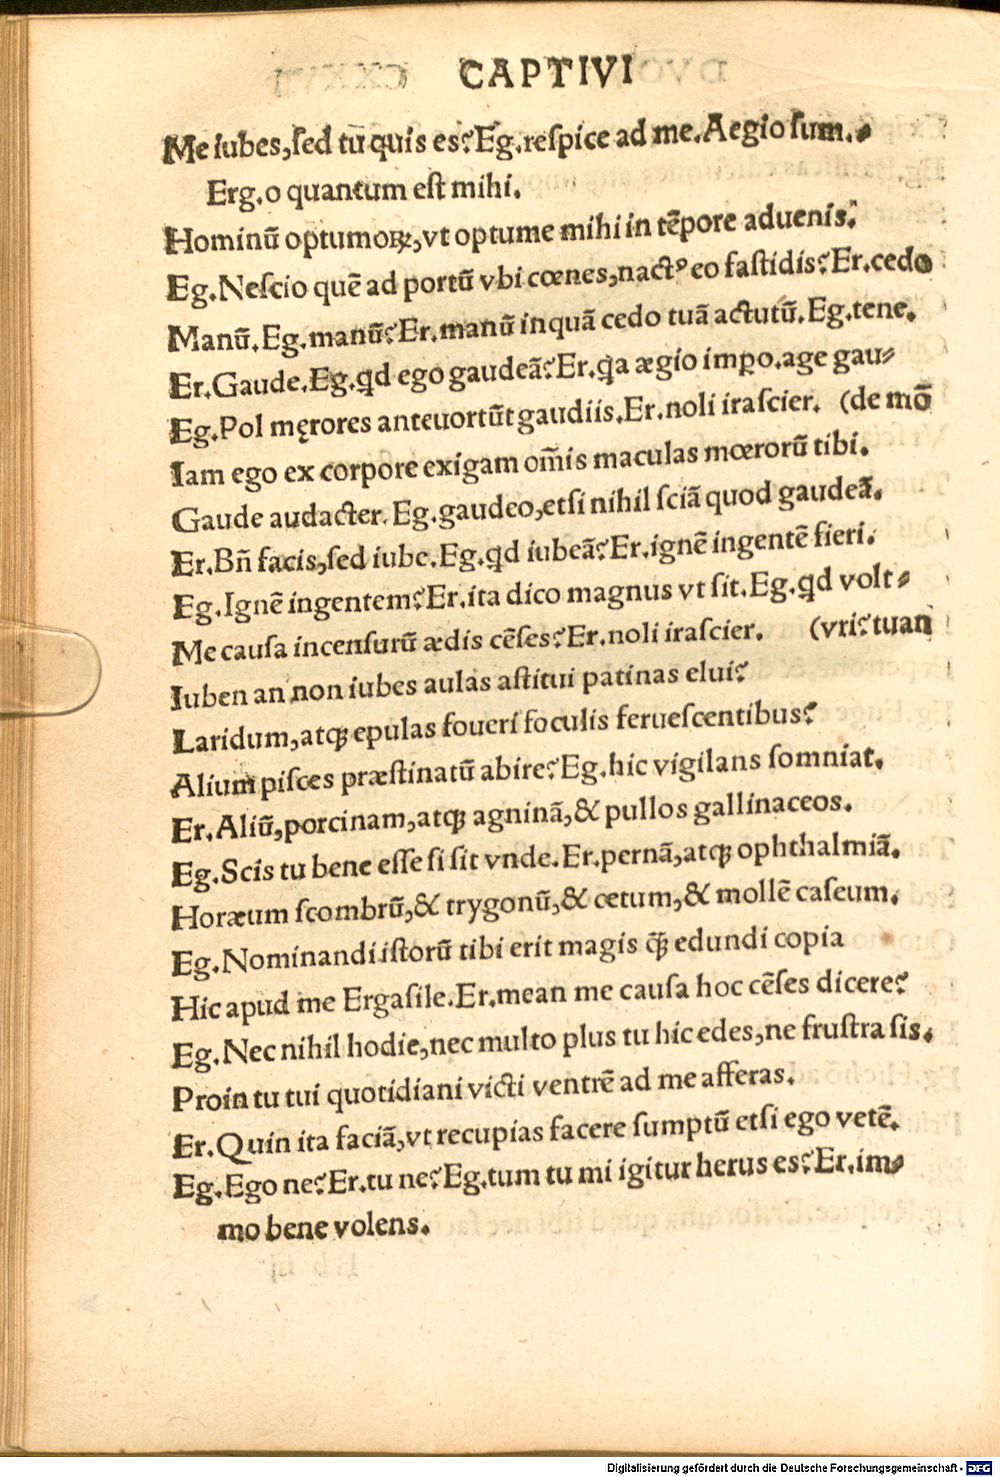 CAPTIVI
Me iubes,ſed tu quis es? Eg.reſpice ad me.Aegio ſum.
Erg.o quantum eſt mihi.
Hominū optumoꝝ,vt optume mihi in tēpore aduenis.
Eg.Neſcio quē ad portū vbi cœnes,nactꝰ eo faſtidis? Er.cedo
Manū.Eg.manū? Er.manū inquā cedo tuā actutū.Eg.tene.
Er.Gaude.Eg.qd ego gaudeā? Er.qa ægio impo.age gau⸗
Eg.Pol męrores anteuortūt gaudiis.Er.noli iraſcier. (de mō
Iam ego ex corpore exigam om̄is maculas mœrorū tibi.
Gaude audacter. Eg.gaudeo,etſi nihil ſciā quod gaudeā.
Er.Bn̄ facis,ſed iube.Eg.qd iubeā? Er.ignē ingentē fieri.
Eg.Ignē ingentem? Er.ita dico magnus vt ſit.Eg.qd volt⸗
Me cauſa incenſurū ædis cēſes? Er.noli iraſcier. (vri? tuan
Iuben an non iubes aulas aſtitui patinas elui?
Laridum,atqꝫ epulas foueri foculis ferueſcentibus?
Alium piſces præſtinatū abire? Eg.hic vigilans ſomniat.
Er.Aliū,porcinam,atqꝫ agninā,& pullos gallinaceos.
Eg.Scis tu bene eſſe ſi ſit vnde.Er.pernā,atqꝫ ophthalmiā.
Horæum ſcombrū,& trygonū,& cetum,& mollē caſeum.
Eg.Nominandi iſtorū tibi erit magis q̄ꝫ edundi copia
Hic apud me Ergaſile.Er.mean me cauſa hoc cēſes dicere?
Eg.Nec nihil hodie,nec multo plus tu hic edes,ne fruſtra ſis.
Proin tu tui quotidiani victi ventrē ad me afferas.
Er.Quin ita faciā,vt recupias facere ſumptū etſi ego vetē.
Eg.Ego ne? Er.tu ne? Eg.tum tu mi igitur herus es? Er.im⸗
mo bene volens.
Digitalisierung gefördert durch die Deutsche Forschungsgemeinschaft - DFG